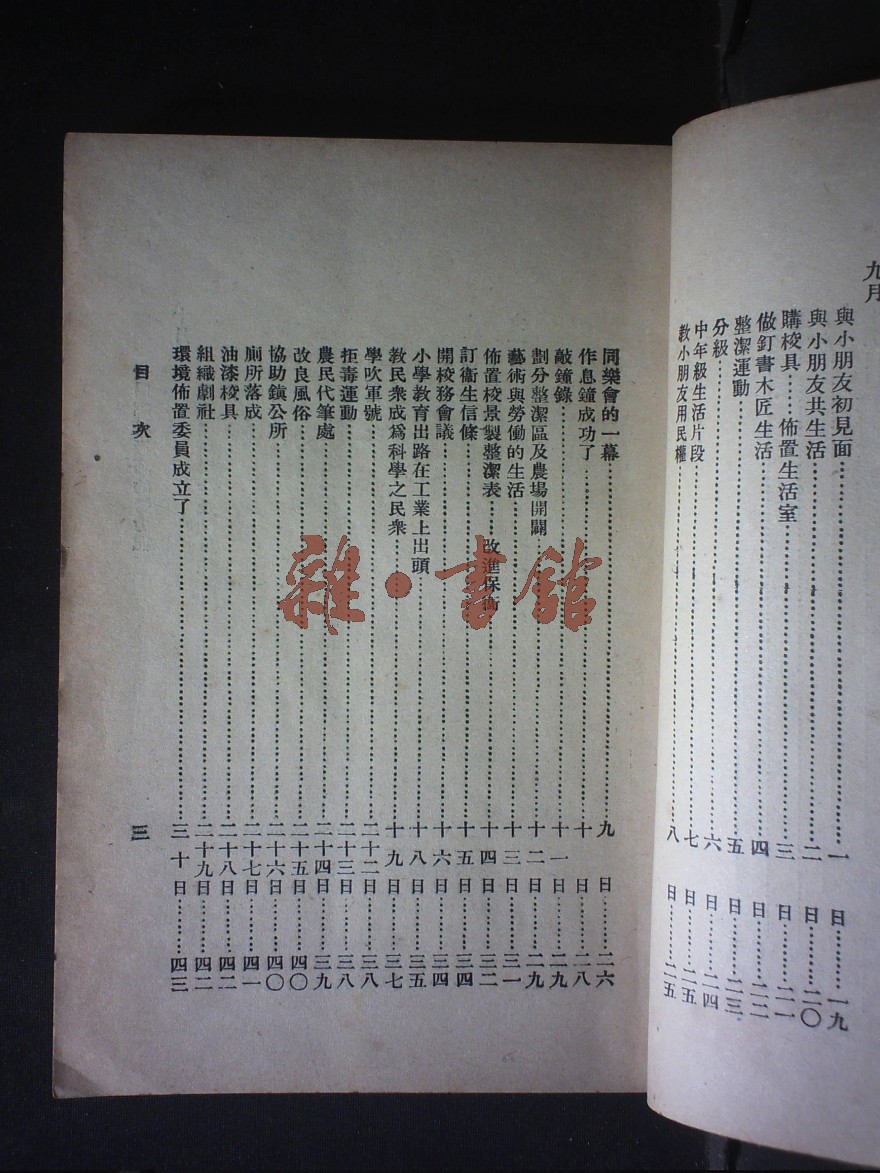 九月
與小朋友初見面……一日……一九
與小朋友共生活……二日……二〇
購校具……佈置生活室……三日……二一
做釘書木匠生活……四日……二二
整潔運動……五日……二三
分級……六日……二四
中年級生活片段……七日……二五
教小朋友用民權……八日……二五
同樂會的一幕……九日……二六
作息鐘成功了……十日……二八
敲鐘錄……十一日……二九
劃分整潔區及農場開闢……十二日……二九
藝術與勞働的生活……十三日……三一
佈置校景製整潔表……改進保衛……十四日……三二
訂衞生信條……十五日……三四
開校務會議……十六日……三四
小學教育出路在工業上出頭……十八日……三五
教民衆成爲科學之民衆……十九日……三七
學吹軍號……二十二日……三八
拒毒運動……二十三日……三八
農民代筆處……二十四日……三九
改良風俗……二十五日……四〇
協助鎮公所……二十六日……四〇
廁所落成……二十七日……四一
油漆校具……二十八日……四二
組織劇社……二十九日……四二
環境佈置委員成立了……三十日……四三
目次
三
雜·書館